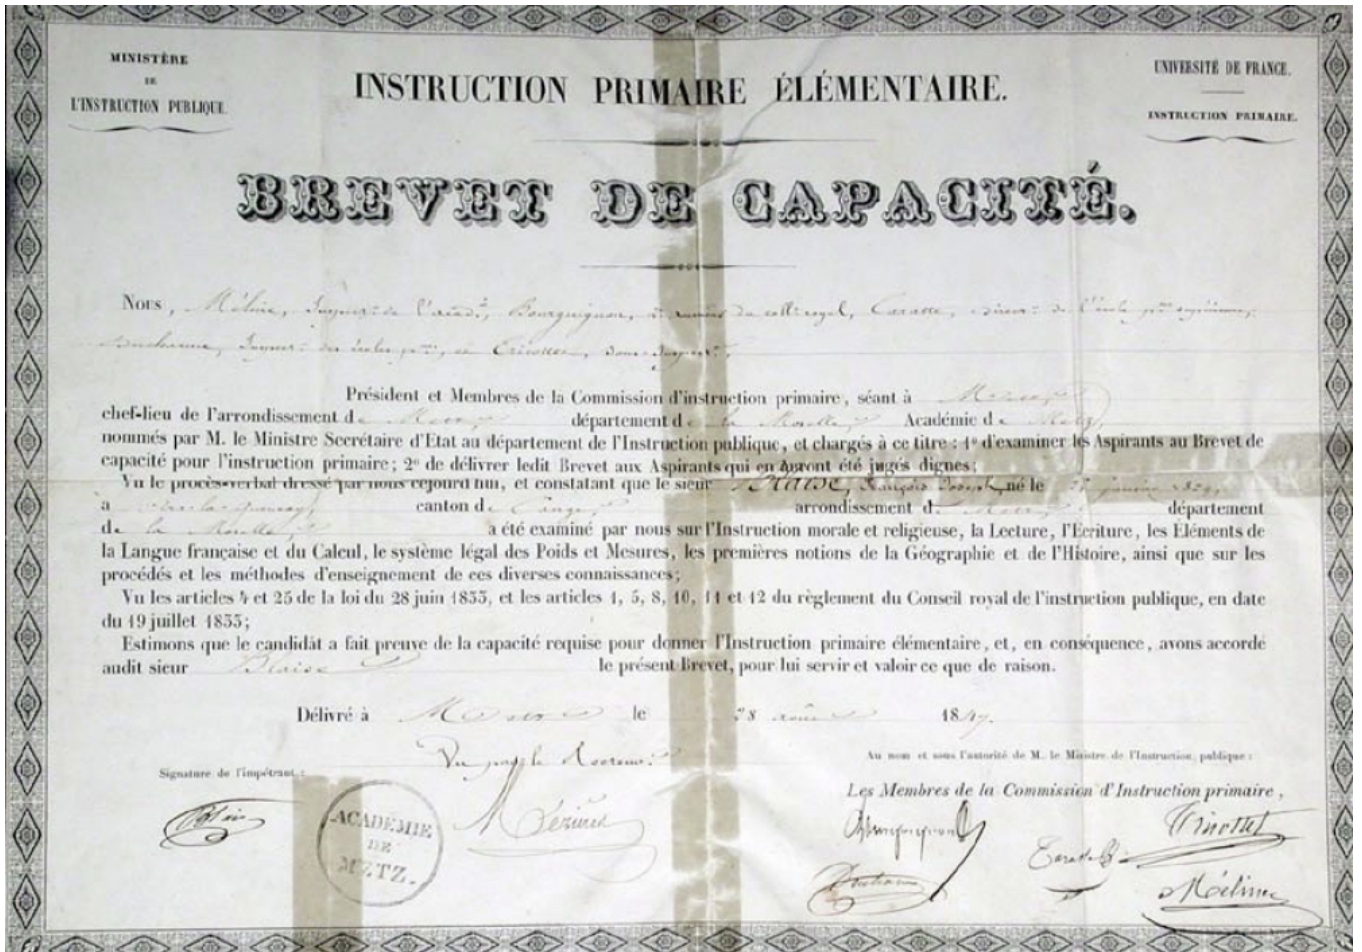 MINISTÈRE
DE
L'INSTRUCTION PUBLIQUE.
INSTRUCTION PRIMAIRE ÉLÉMENTAIRE.
UNIVERSITÉ DE FRANCE.
INSTRUCTION PRIMAIRE.
BREVET DE CAPACITÉ.
Nous, Méline, de Bourguignon, royal, de l'école
des écoles
Président et Membres de la Commission d'instruction primaire, séant à Metz
chef-lieu de l'arrondissement de Metz département de la Moselle Académie de Metz,
nommés par M. le Ministre Secrétaire d'Etat au département de l'Instruction publique, et chargés à ce titre : 1º d'examiner les Aspirants au Brevet de
capacité pour l'instruction primaire ; 2º de délivrer ledit Brevet aux Aspirants qui en auront été jugés dignes ;
Vu le procès-verbal dressé par nous cejourd'hui, et constatant que le sieur Blaise, François Joseph, né le janvier
à canton de arrondissement de Metz département
de la Moselle, a été examiné par nous sur l'Instruction morale et religieuse, la Lecture, l'Ecriture, les Éléments de
la Langue française et du Calcul, le système légal des Poids et Mesures, les premières notions de la Géographie et de l'Histoire, ainsi que sur les
procédés et les méthodes d'enseignement de ces diverses connaissances ;
Vu les articles 4 et 25 de la loi du 28 juin 1833, et les articles 1, 5, 8, 10, 11 et 12 du règlement du Conseil royal de l'instruction publique, en date
du 19 juillet 1833 ;
Estimons que le candidat a fait preuve de la capacité requise pour donner l'Instruction primaire élémentaire, et, en conséquence, avons accordé
audit sieur Blaise le présent Brevet, pour lui servir et valoir ce que de raison.
Délivré à Metz le 28 août 1847.
Vu par le
Au nom et sous l'autorité de M. le Ministre de l'Instruction publique :
Signature de l'impétrant :
Les Membres de la Commission d'Instruction primaire,
ACADÉMIE
DE
METZ.
Bourguignon
Méline